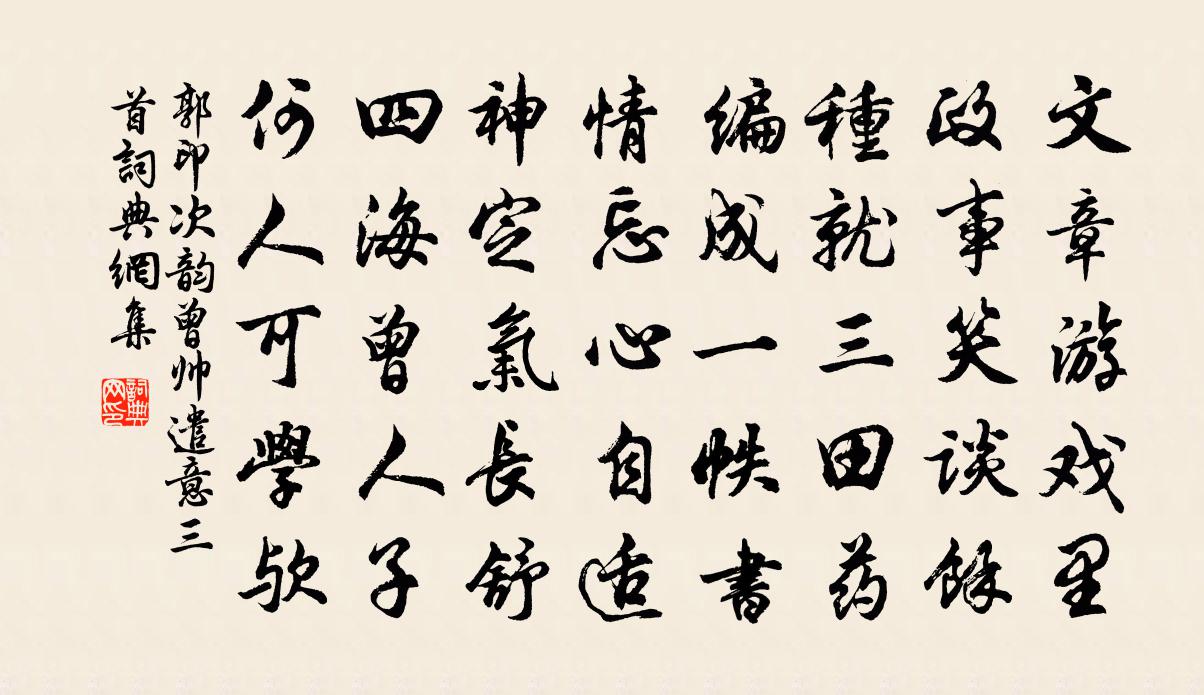 文章游戏里
政事笑谈餘
種就三田药
编成一帙書
情忘心自适
神定氣長舒
四海曾人子
何人可學欤
郭印次韵曾帅遣意三
首詞典網集
詞典网印